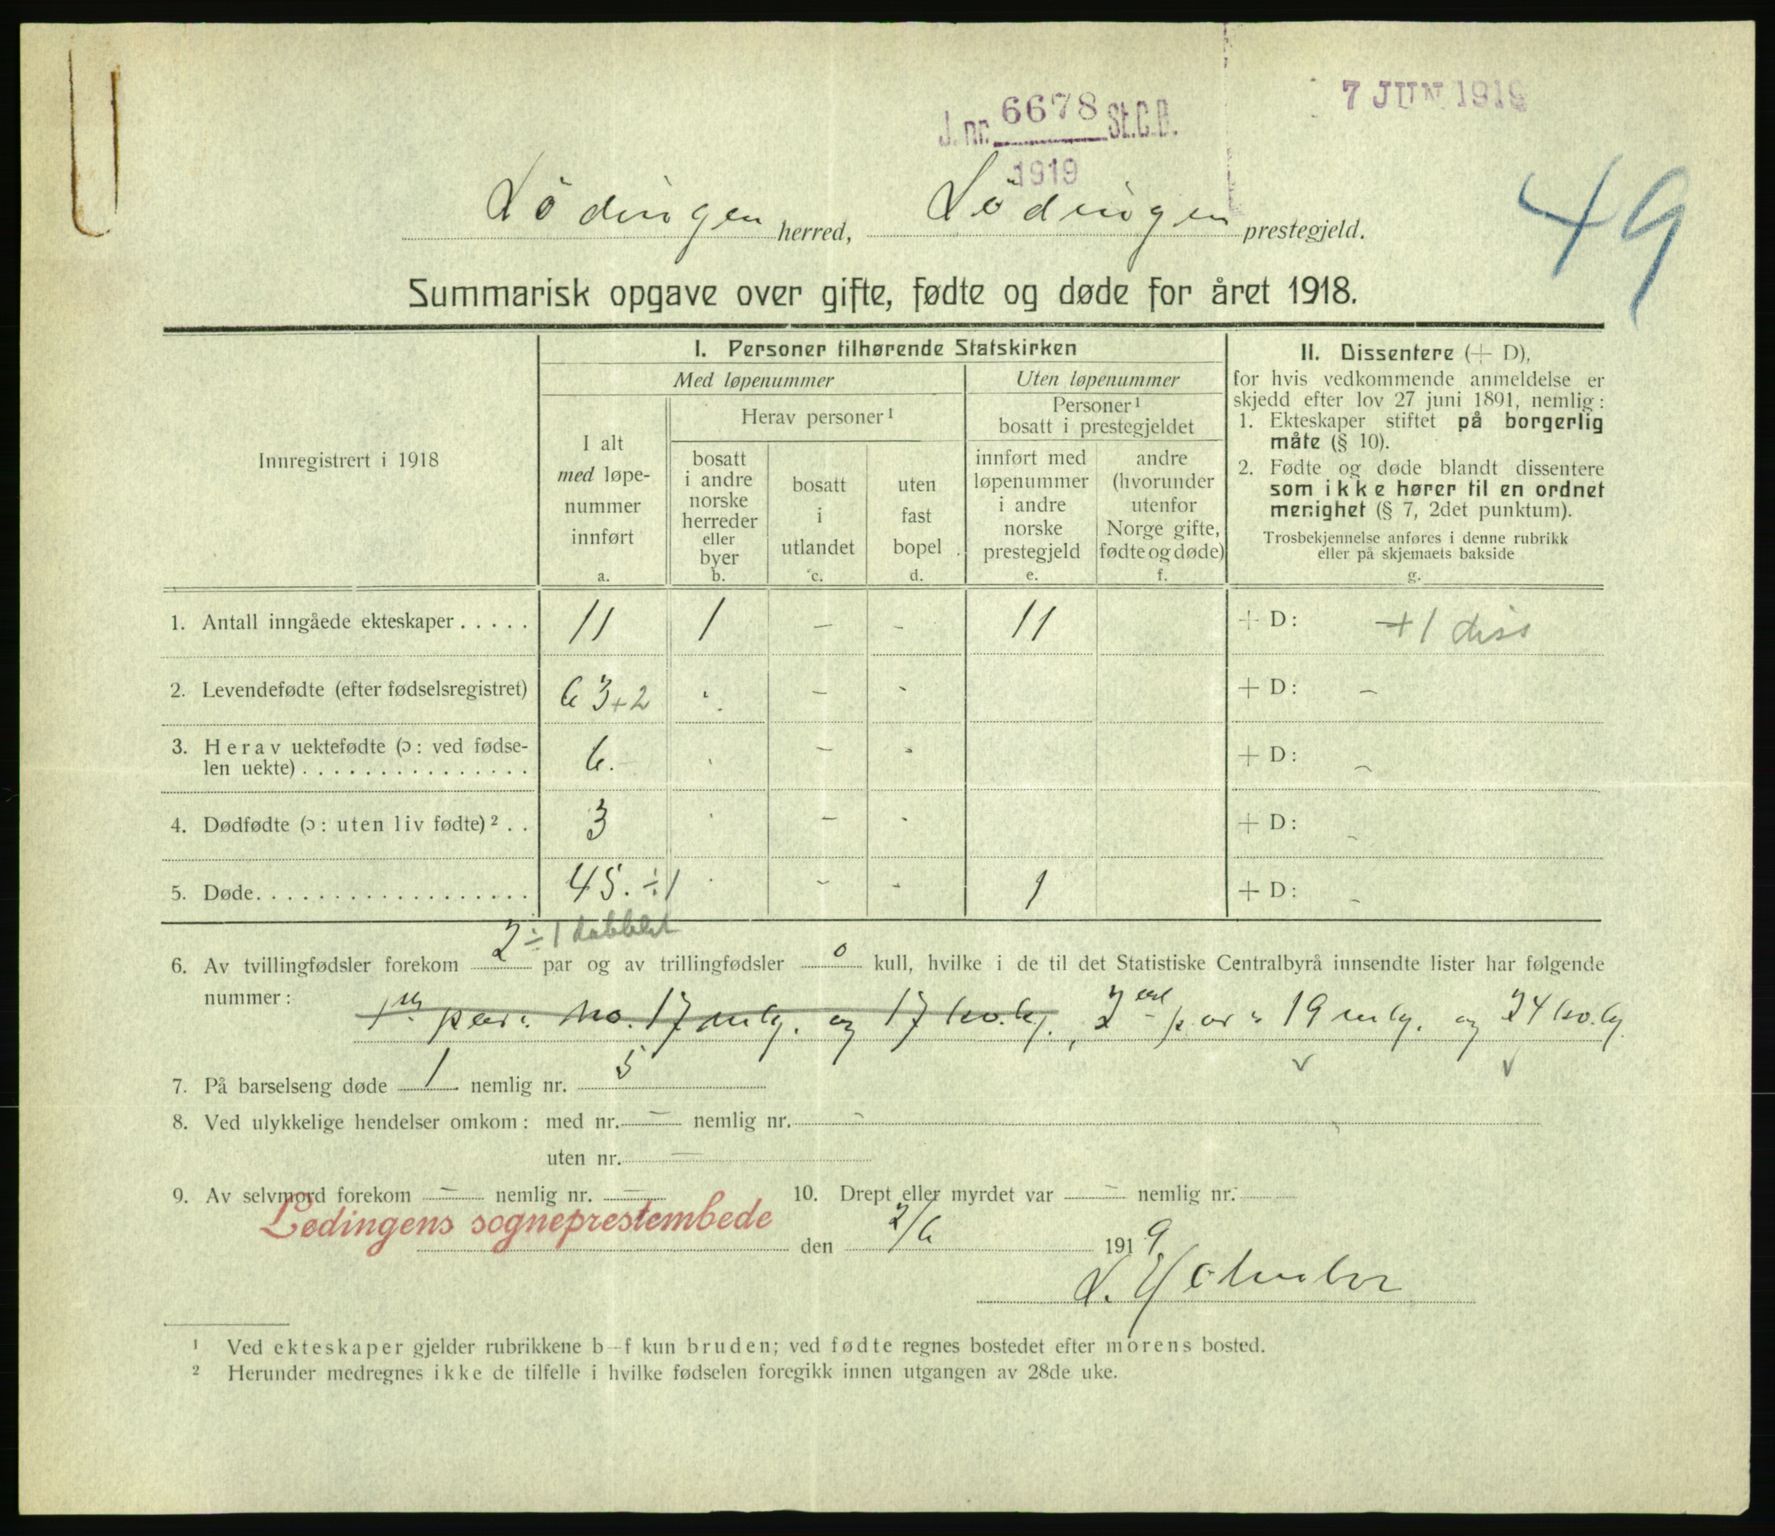 J. nr. 6678 St.C.B.
1919
7 JUN 1919
49
Lödingen herred, Lödingen prestegjeld.
Summarisk opgave over gifte, fødte og døde for året 1918.
Innregistrert i 1918
I. Personer tilhørende Statskirken
Med løpenummer
Uten løpenummer
I alt
med løpe-
nummer
innført
a.
Herav personer ¹
bosatt
i andre
norske
herreder
eller
byer
b.
bosatt
i
utlandet
c.
uten
fast
bopel
d.
Personer ¹
bosatt i prestegjeldet
innført med
løpenummer
i andre
norske
prestegjeld
e.
andre
(hvorunder
utenfor
Norge gifte,
fødte og døde)
f.
II. Dissentere (+ D),
for hvis vedkommende anmeldelse er
skjedd efter lov 27 juni 1891, nemlig:
1. Ekteskaper stiftet på borgerlig
måte (§ 10).
2. Fødte og døde blandt dissentere
som ikke hører til en ordnet
menighet (§ 7, 2det punktum).
Trosbekjennelse anføres i denne rubrikk
eller på skjemaets bakside
g.
1. Antall inngåede ekteskaper..... 11 1 – – 11 + D: +1 diss
2. Levendefødte (efter fødselsregistret) 63 +2 " – - + D: –
3. Herav uektefødte (ɔ: ved fødse-
len uekte)............... 6. – - + D: –
4. Dødfødte (ɔ: uten liv fødte) ².. 3 – - + D: -
5. Døde.................. 45. ÷1 – - 1 + D: -
6. Av tvillingfødsler forekom 2 ÷ 1 dobblet par og av trillingfødsler 0 kull, hvilke i de til det Statistiske Centralbyrå innsendte lister har følgende
nummer: 1ste par: No. 17 mlg. og 17 kv.lg., 2det par: 19 mlg. og 24 kv.lg.
7. På barselseng døde 1 nemlig nr. 5
8. Ved ulykkelige hendelser omkom: med nr. – nemlig nr. –
uten nr. –
9. Av selvmord forekom – nemlig nr. – 10. Drept eller myrdet var – nemlig nr.
Lødingens sogneprestembede den 2/6 1919
¹ Ved ekteskaper gjelder rubrikkene b–f kun bruden; ved fødte regnes bostedet efter morens bosted.
² Herunder medregnes ikke de tilfelle i hvilke fødselen foregikk innen utgangen av 28de uke.